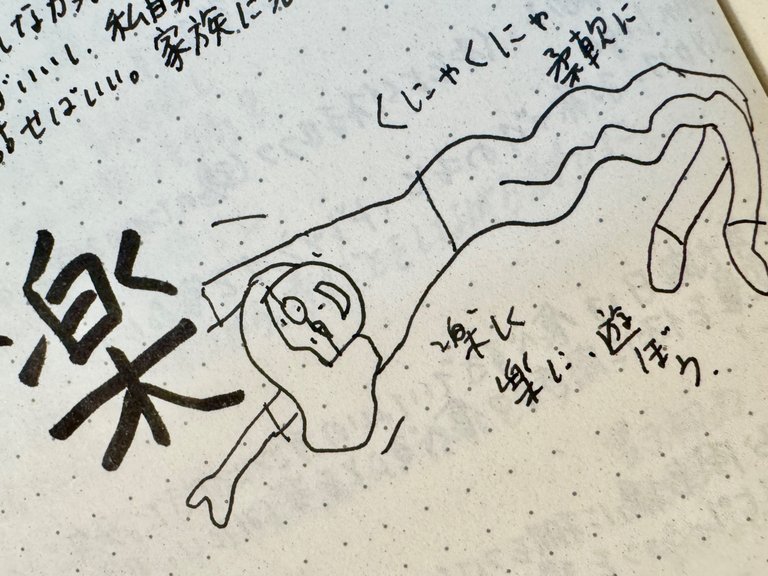 しなが
ばいいし、私自
せばいい。家族に
くにゃくにゃ
柔軟に
楽
楽しく
楽に、遊ぼう。